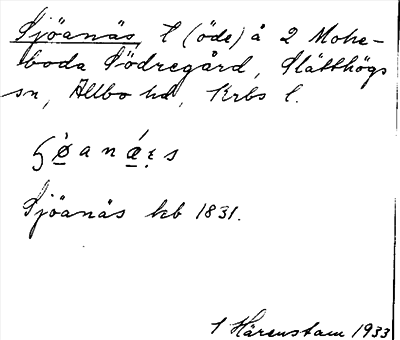 Sjöanäs, T (öde) å 2 Mohe-
boda Södregård, Slätthögs
sn, Allbo hd, Krbs l.
Sjöanäs kb 1831.
T Härenstam 1933